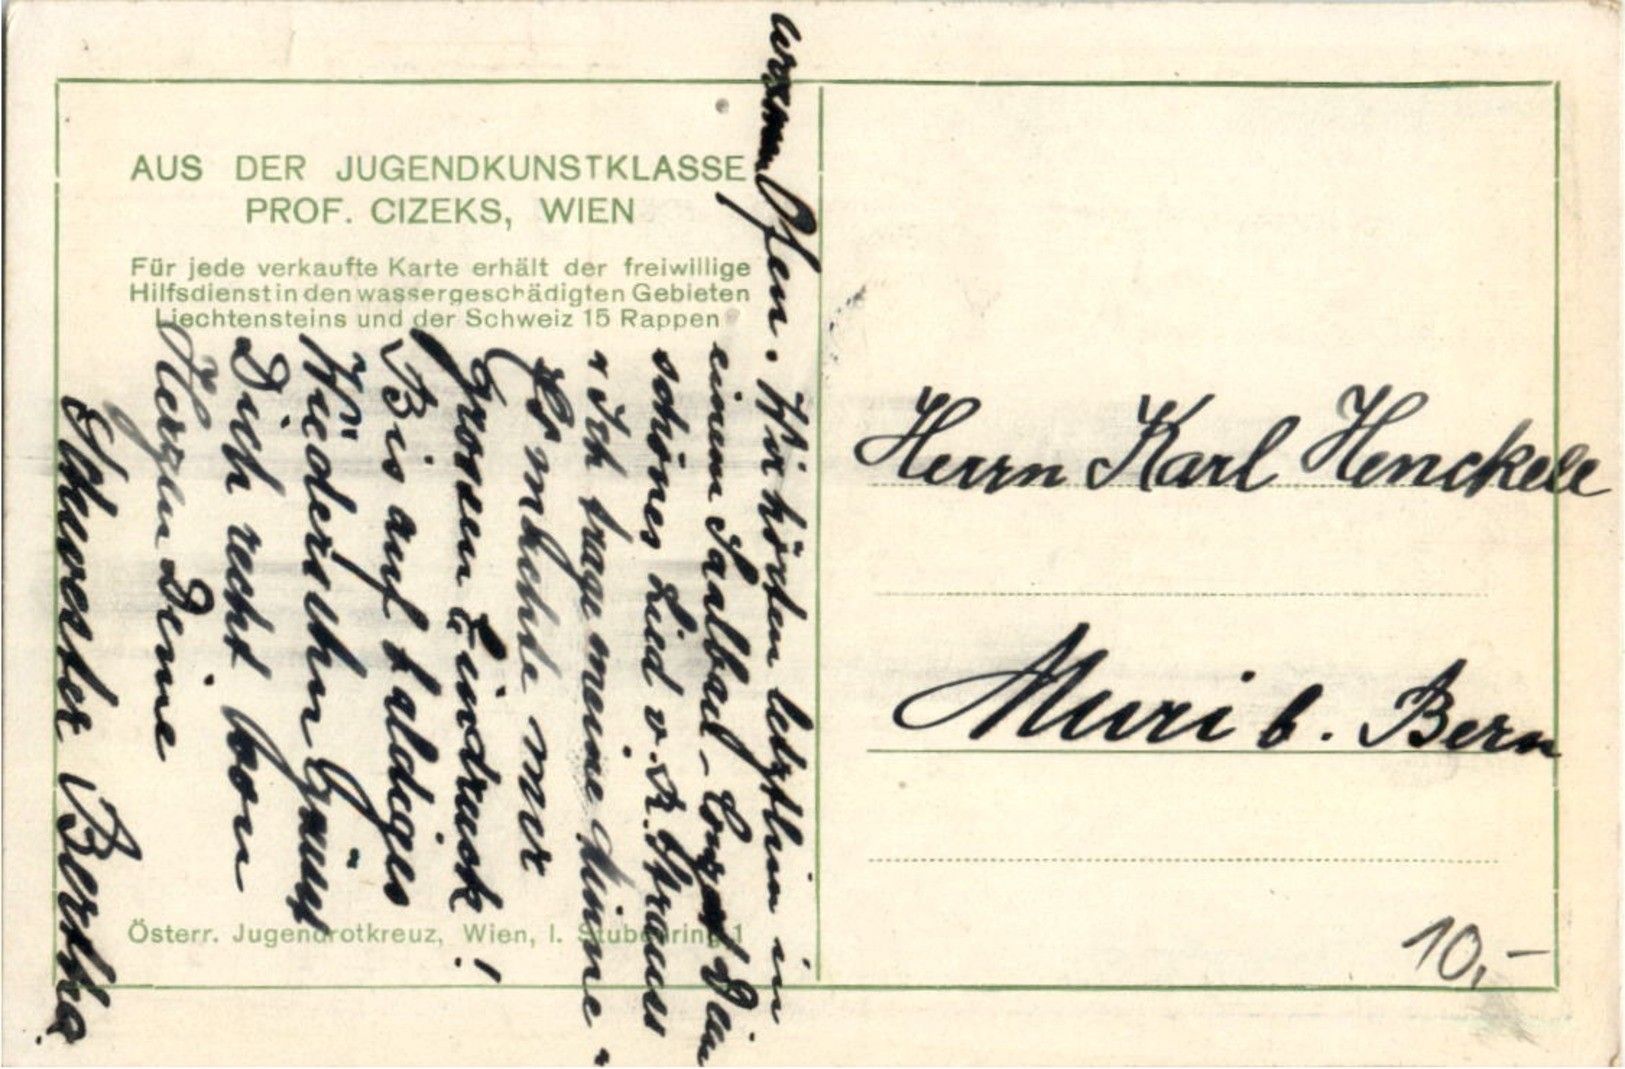 AUS DER JUGENDKUNSTKLASSE
PROF. CIZEKS, WIEN
Für jede verkaufte Karte erhält der freiwillige
Hilfsdienst in den wassergeschädigten Gebieten
Liechtensteins und der Schweiz 15 Rappen
warmen Ofen. Wir hörten letzthin in
einem Saalbau-Conzert Dein
schönes Lied v. R. Strauss
"Ich trage meine Minne"
Es machte mir
Grossen Eindruck!
Bis auf baldiges
Wiedersehn Grüsst
Dich recht von
Herzen Deine
Schwester Bertha
Österr. Jugendrotkreuz, Wien, I. Stubenring 1
Herrn Karl Henckell
Muri b. Bern
10,-